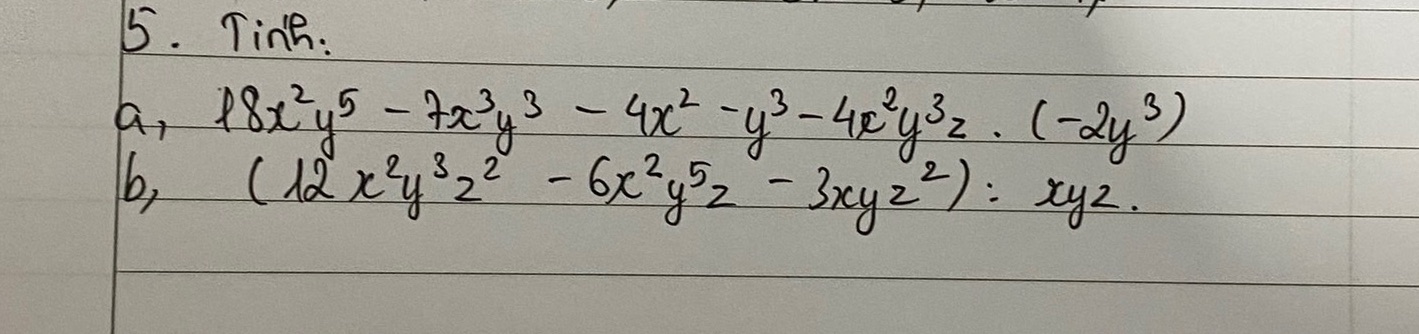 5. Tính:
a, 18x²y⁵ - 7x³y³ - 4x² - y³ - 4x²y³z . (-2y³)
b, (12x²y³z² - 6x²y⁵z - 3xyz²) : xyz.